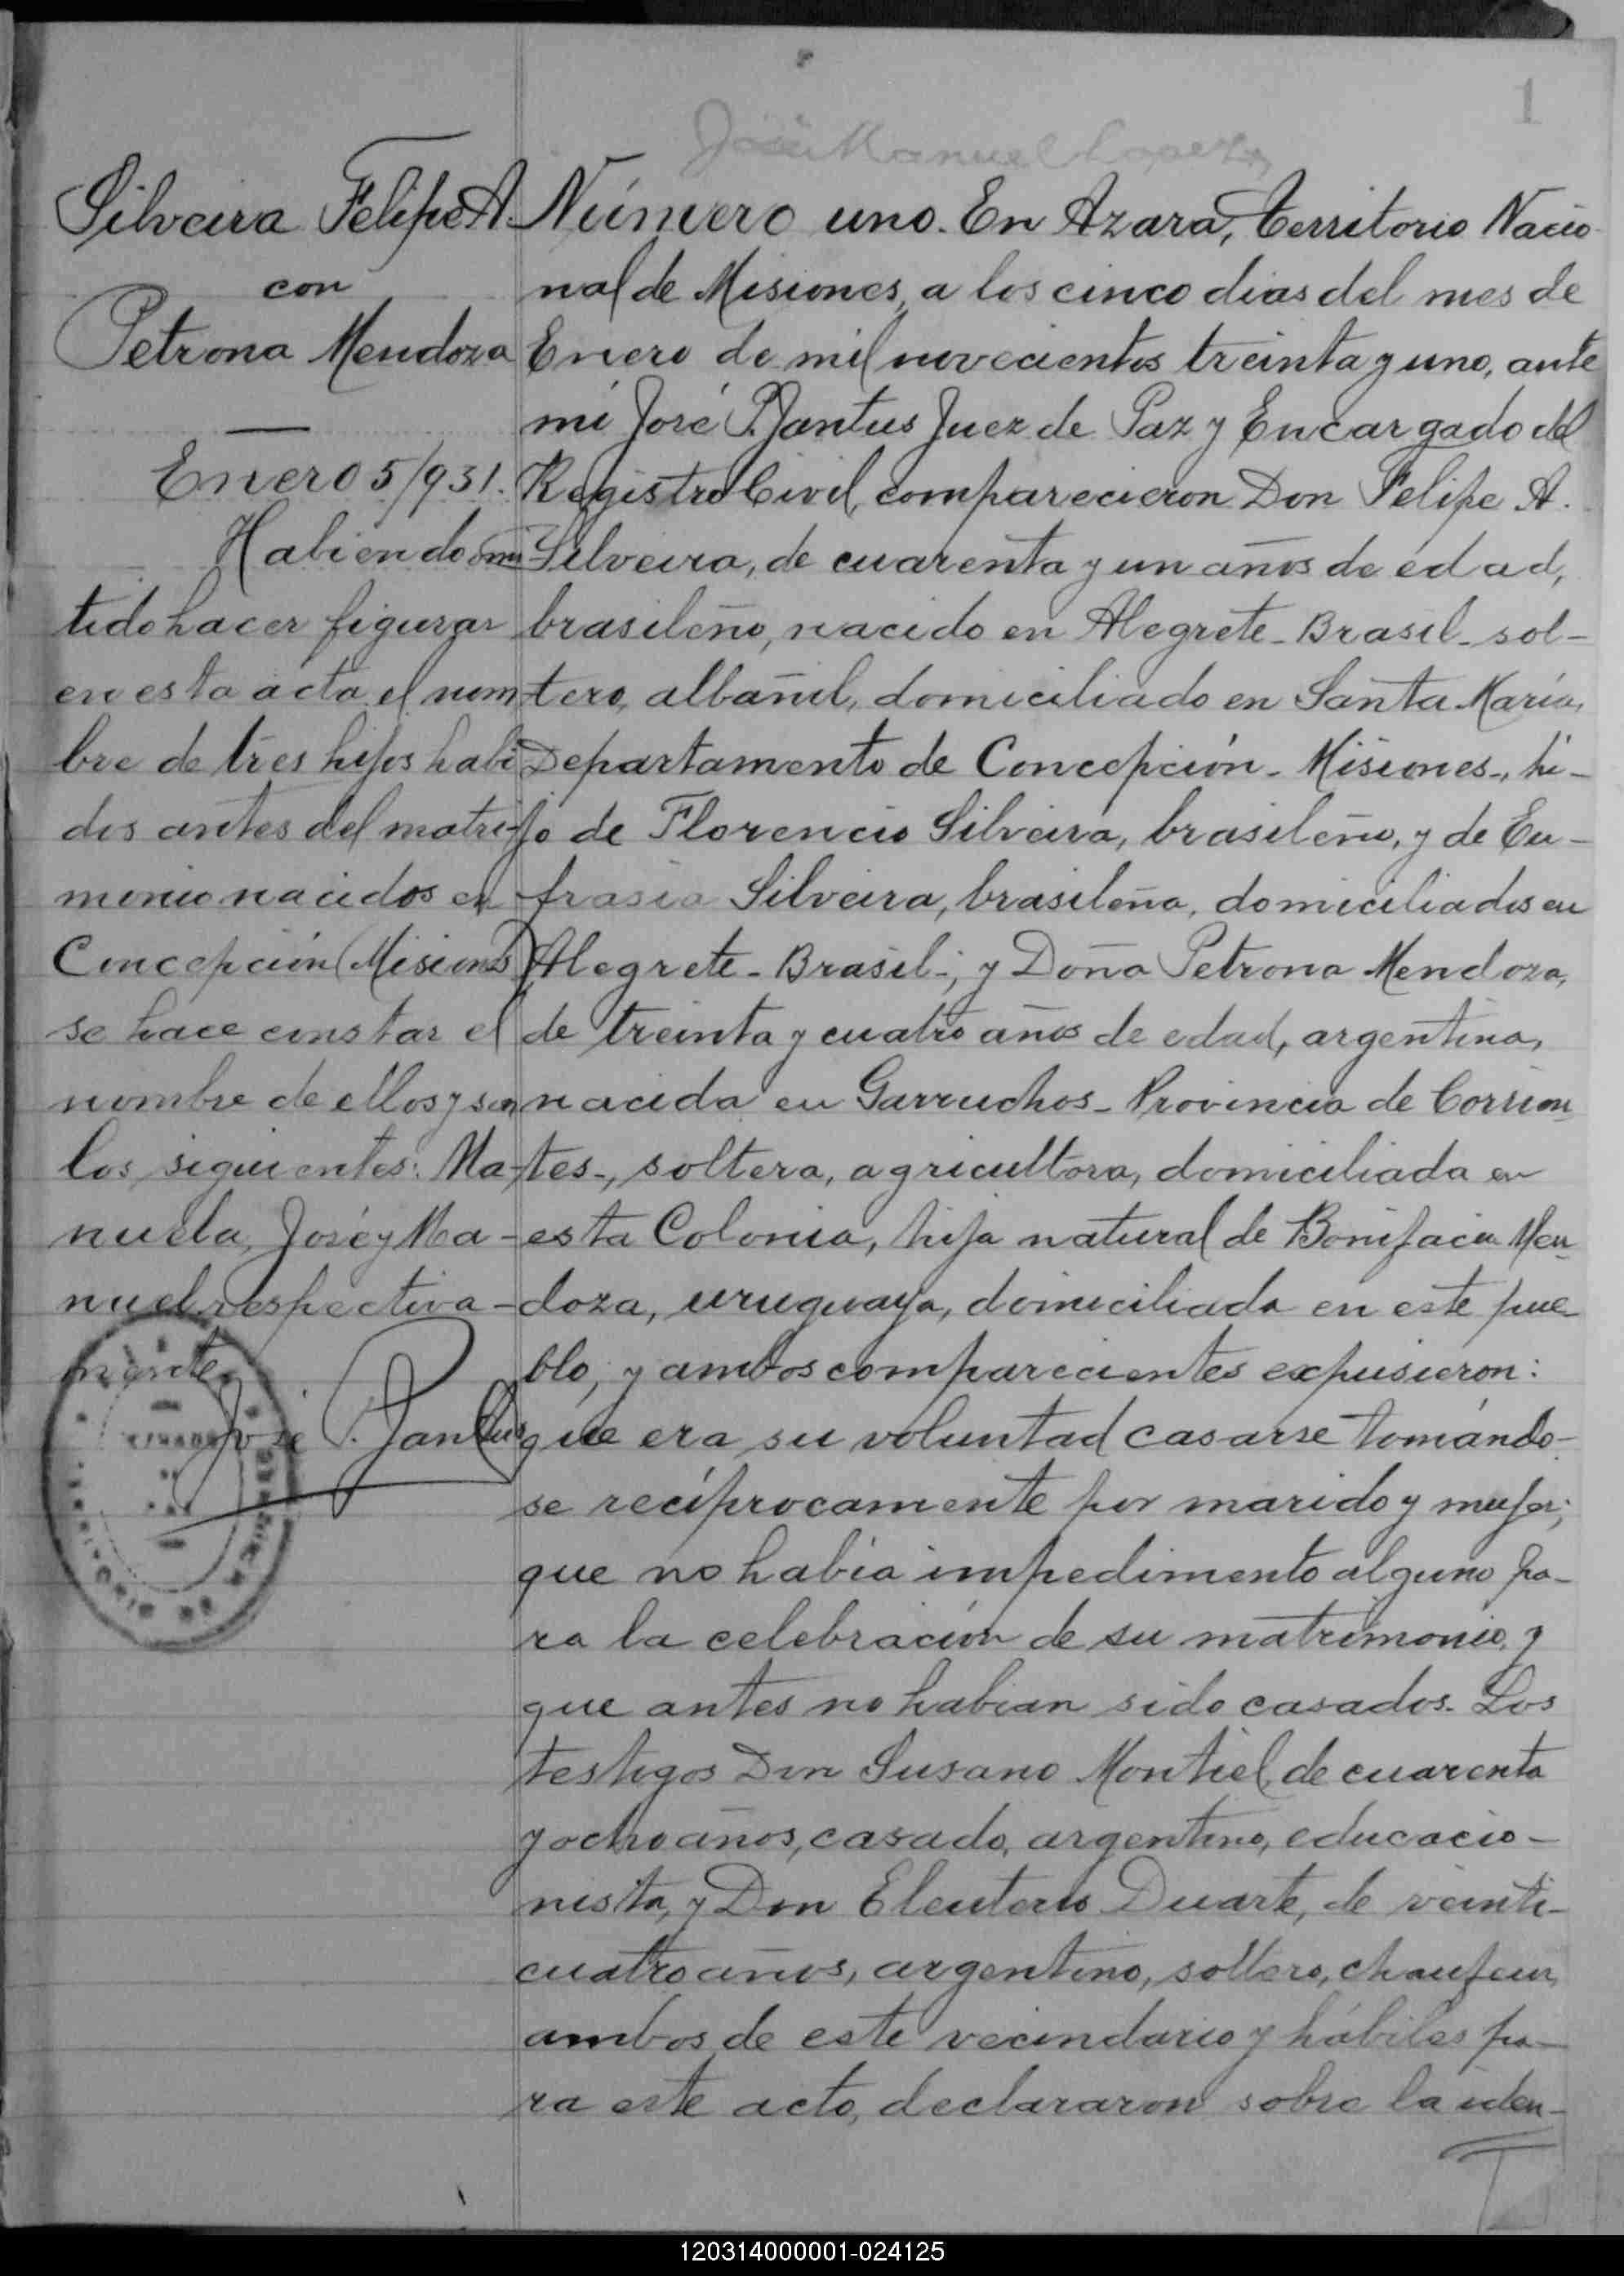 1
José Manuel Lopez
Silveira Felipe A
con
Petrona Mendoza
Enero 5/931.
Habiendo omi
tido hacer figurar
en esta acta el nom
bre de tres hijos habi
dos antes del matri-
monio nacidos en
Concepción (Misiones)
se hace constar el
nombre de ellos y son
los siguientes: Ma-
nuela, José y Ma-
nuel respectiva-
mente.
José P. Jantus
Número uno. En Azara, Territorio Nacio-
nal de Misiones, a los cinco dias del mes de
Enero de mil novecientos treinta y uno, ante
mi José P. Jantus Juez de Paz y Encargado del
Registro Civil, comparecieron Don Felipe A.
Silveira, de cuarenta y un años de edad,
brasileño, nacido en Alegrete - Brasil - sol-
tero, albañil, domiciliado en Santa María,
Departamento de Concepción - Misiones -, hi-
jo de Florencio Silveira, brasileño, y de Eu-
frasia Silveira, brasileña, domiciliados en
Alegrete - Brasil -; y Doña Petrona Mendoza,
de treinta y cuatro años de edad, argentina,
nacida en Garruchos - Provincia de Corrien
tes -, soltera, agricultora, domiciliada en
esta Colonia, hija natural de Bonifacia Men
doza, uruguaya, domiciliada en este pue-
blo; y ambos comparecientes expusieron:
que era su voluntad casarse tomándo-
se recíprocamente por marido y mujer;
que no había impedimento alguno pa-
ra la celebración de su matrimonio, y
que antes no habian sido casados. Los
testigos Don Susano Montiel, de cuarenta
y ocho años, casado, argentino, educacio-
nista, y Don Eleuterio Duarte, de veinti-
cuatro años, argentino, soltero, chaufeur,
ambos de este vecindario y hábiles pa-
ra este acto, declararon sobre la iden-
120314000001-024125